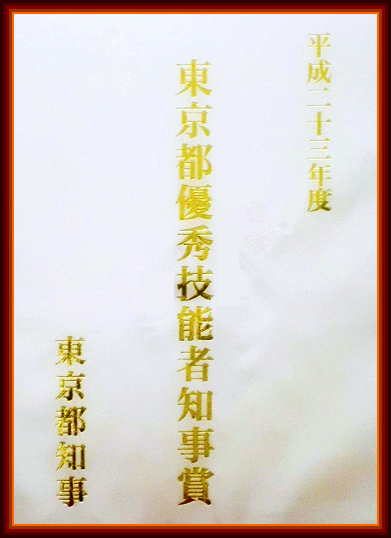 平成二十三年度
東京都優秀技能者知事賞
東京都知事